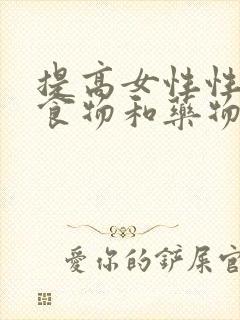 提高女性性
食物和药物
爱你的铲屎官